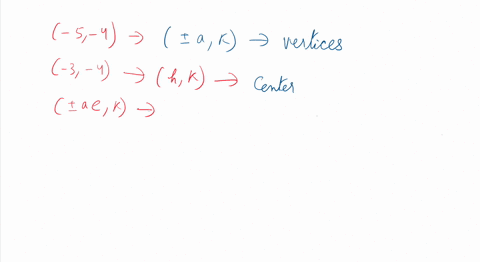 (-5,-4) → (± a, K) → vertices
(-3,-4) → (h, K) → Center
(± ae, K) →